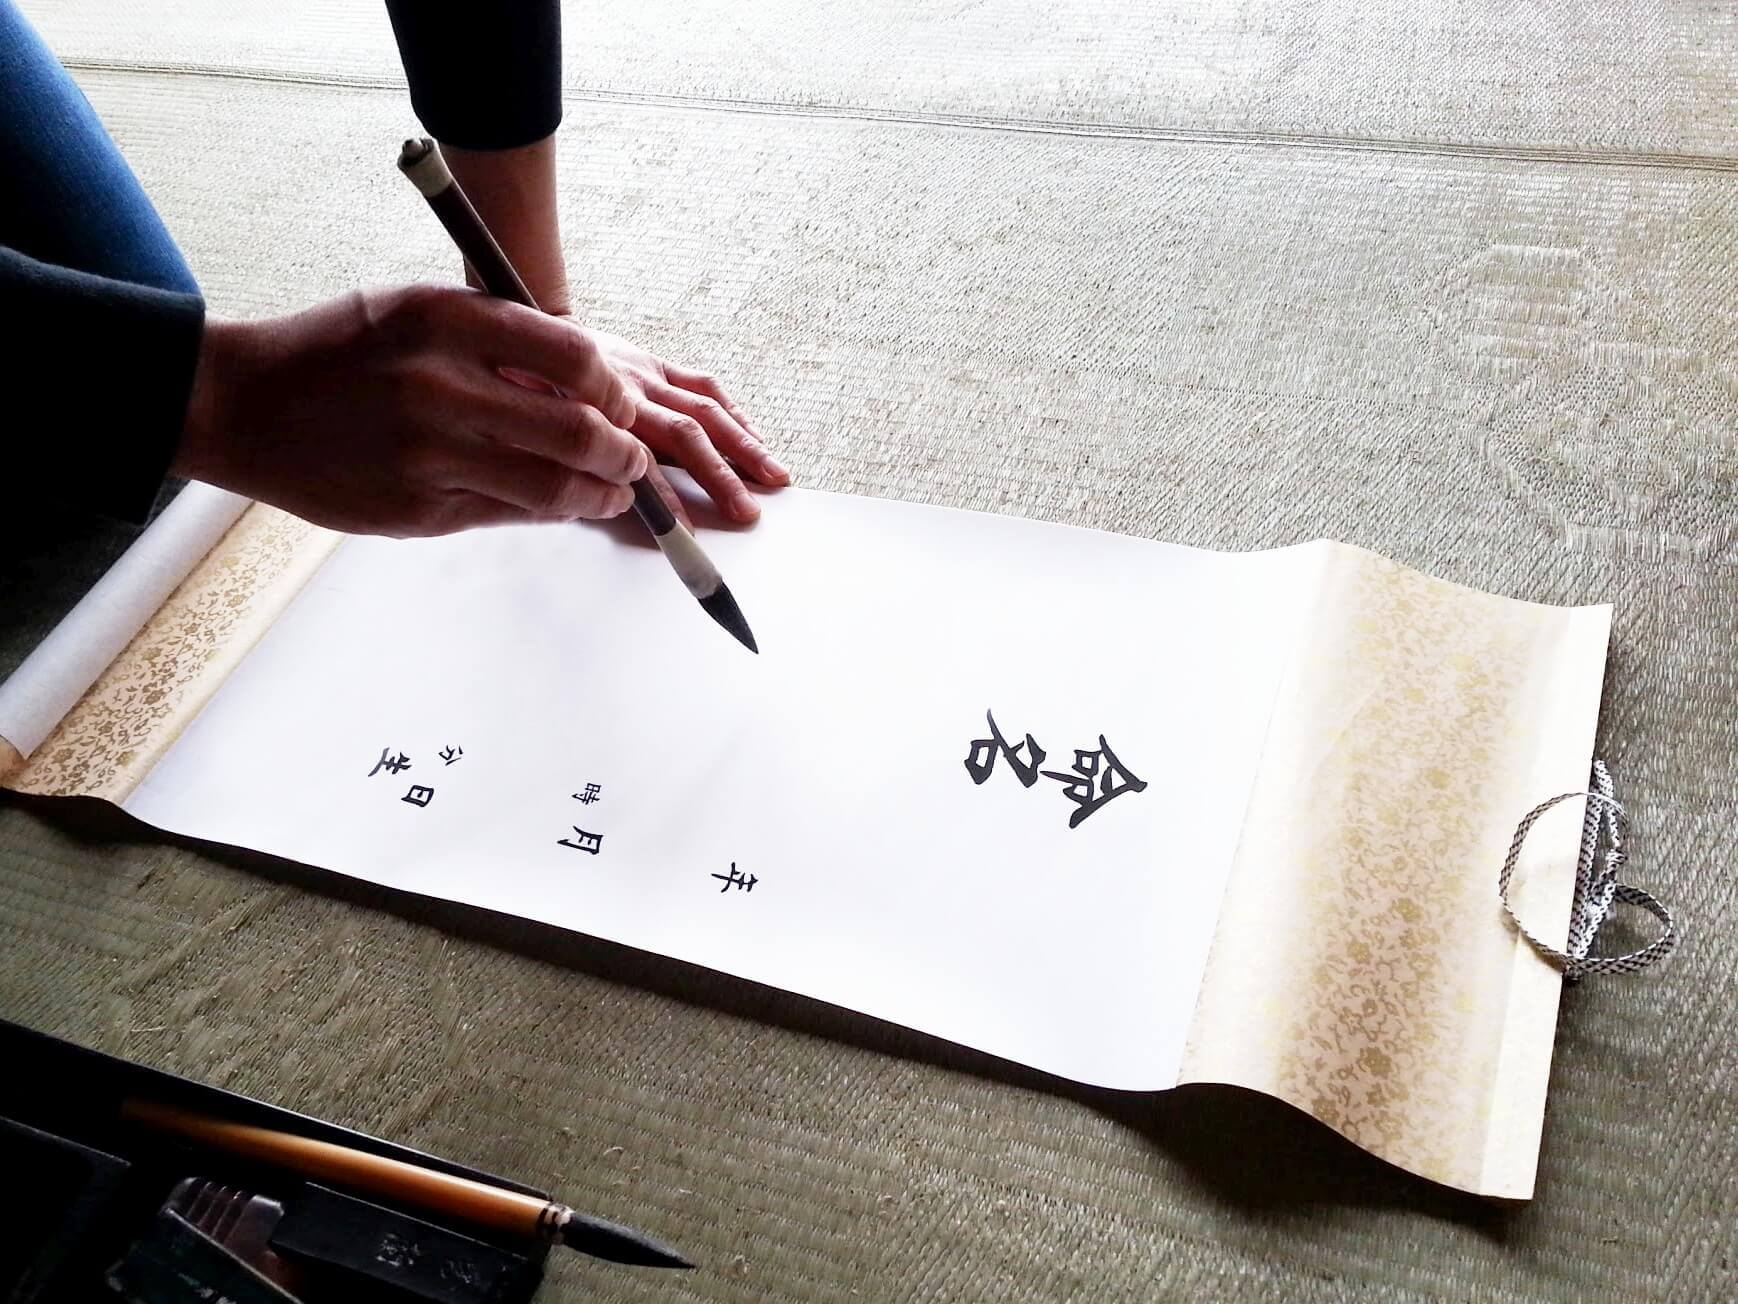 命名
年
月
日
時
分
生